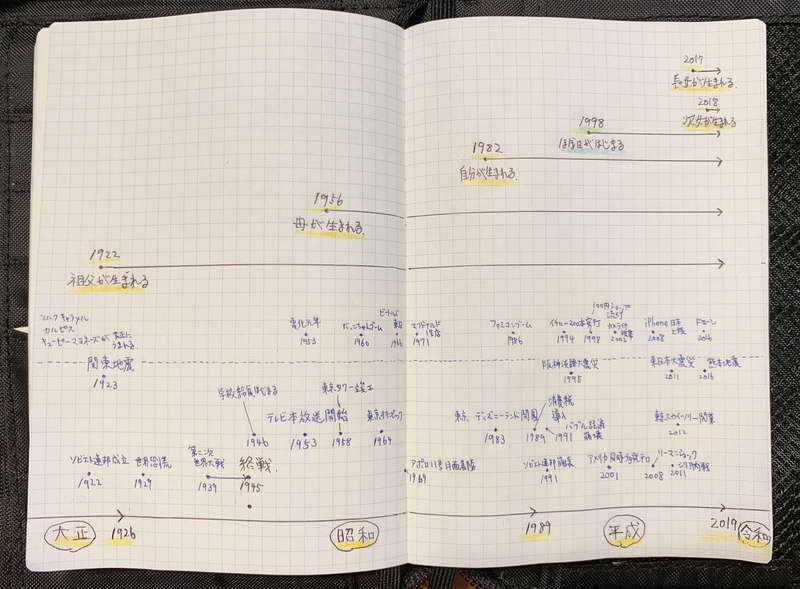 2017
長女が生まれる
2018
次女が生まれる
1998
ほぼ日がはじまる
1982
自分が生まれる
1956
母が生まれる
1922
祖父が生まれる
ミルクキャラメル
カルピス
キューピーマヨネーズが
大正に
うまれる
電化元年
1953
だっこちゃんブーム
1960
マクドナルド
1971
ファミコンブーム
1986
イチロー200本安打
1994
1998
100円ショップ
カメラ付
携帯
2002
iPhone日本
上陸
2008
ドローン
2016
関東地震
1923
阪神淡路大震災
1995
東日本大震災
2011
熊本地震
2016
学校給食はじまる
1946
テレビ本放送開始
1953
東京タワー竣工
1958
東京オリンピック
1964
東京ディズニーランド開園
1983
消費税
導入
1989
バブル経済
崩壊
1991
東京スカイツリー開業
2012
ソビエト連邦成立
1922
世界恐慌
1929
第二次
世界大戦
1939
終戦
1945
アポロ11号月面着陸
1969
ソビエト連邦崩壊
1991
アメリカ同時多発テロ
2001
リーマンショック
2008
シリア内戦
2011
大正
1926
昭和
1989
平成
2019
令和